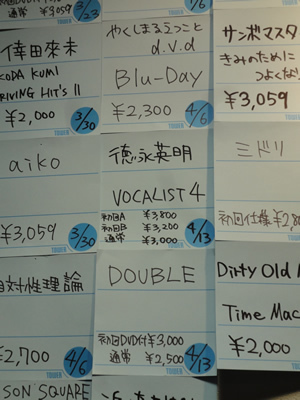 ¥3,059
通常
3/23
4/6
幸田來未
KODA KUMI
DRIVING HIT's II
¥2,000
3/30
TOWER
やくしまるえつこと
d.v.d
Blu-Day
¥2,300
4/6
TOWER
サンボマスタ
きみのために
つよくな
¥3,059
aiko
¥3,059
3/30
TOWER
徳永英明
VOCALIST 4
初回A ¥3,800
初回B ¥3,200
通常 ¥3,000
4/13
TOWER
ミドリ
初回仕様 ¥2,8
相対性理論
¥2,700
4/6
TOWER
DOUBLE
初回DVD付 ¥3,000
通常 ¥2,500
4/13
TOWER
Dirty Old M
Time Mac
¥2,000
SON SQUARE